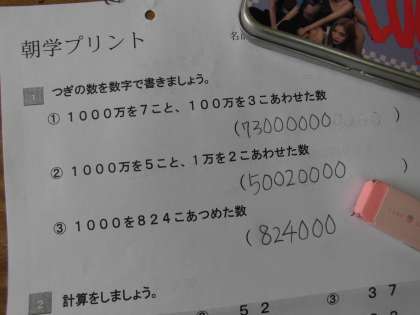 朝学プリント
名前
1 つぎの数を数字で書きましょう。
① 1000万を7こと、100万を3こあわせた数
(73000000 )
② 1000万を5こと、1万を2こあわせた数
(50020000 )
③ 1000を824こあつめた数
(824000
2 計算をしましょう。
② 5 2 ③ 3 7